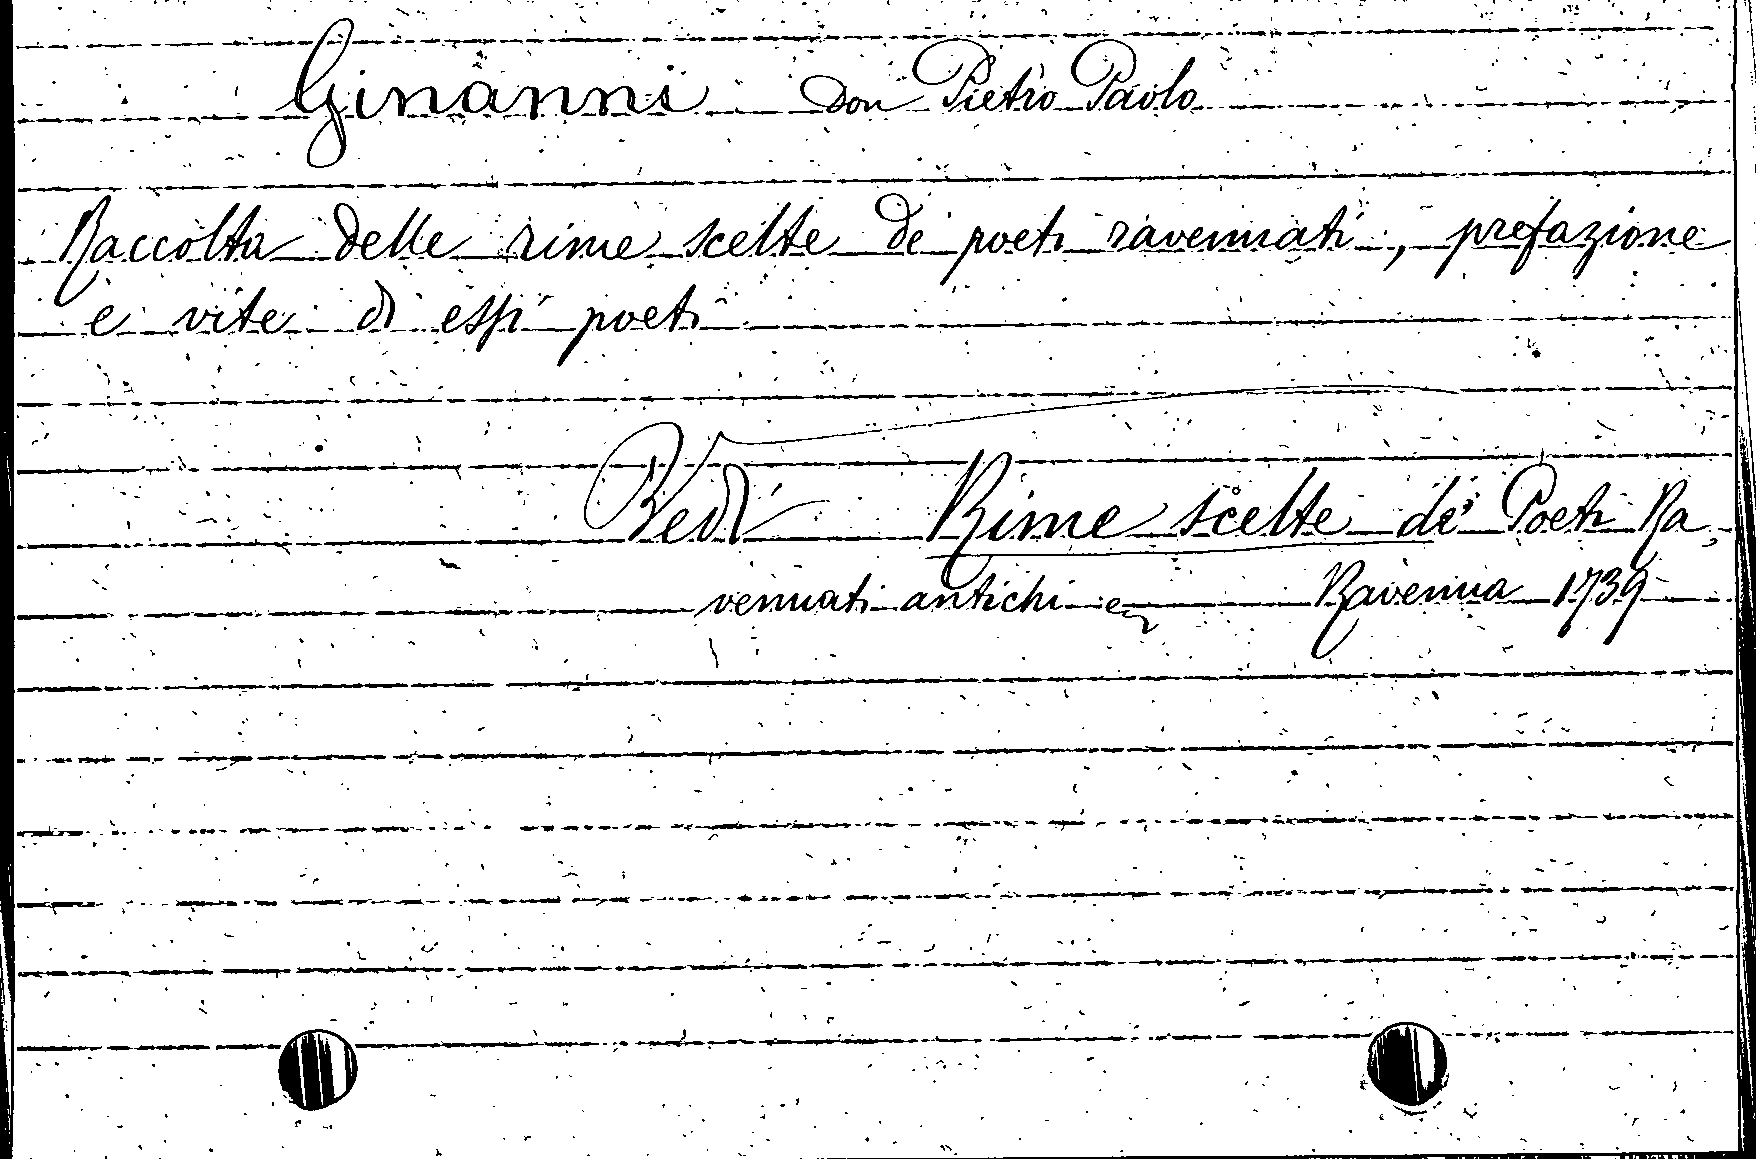 Ginanni Don Pietro Paolo
Raccolta delle rime scelte de poeti ravennati, prefazione
e vite di essi poeti
Vedi Rime scelte de' Poeti Ra,
vennati antichi ec Ravenna 1739